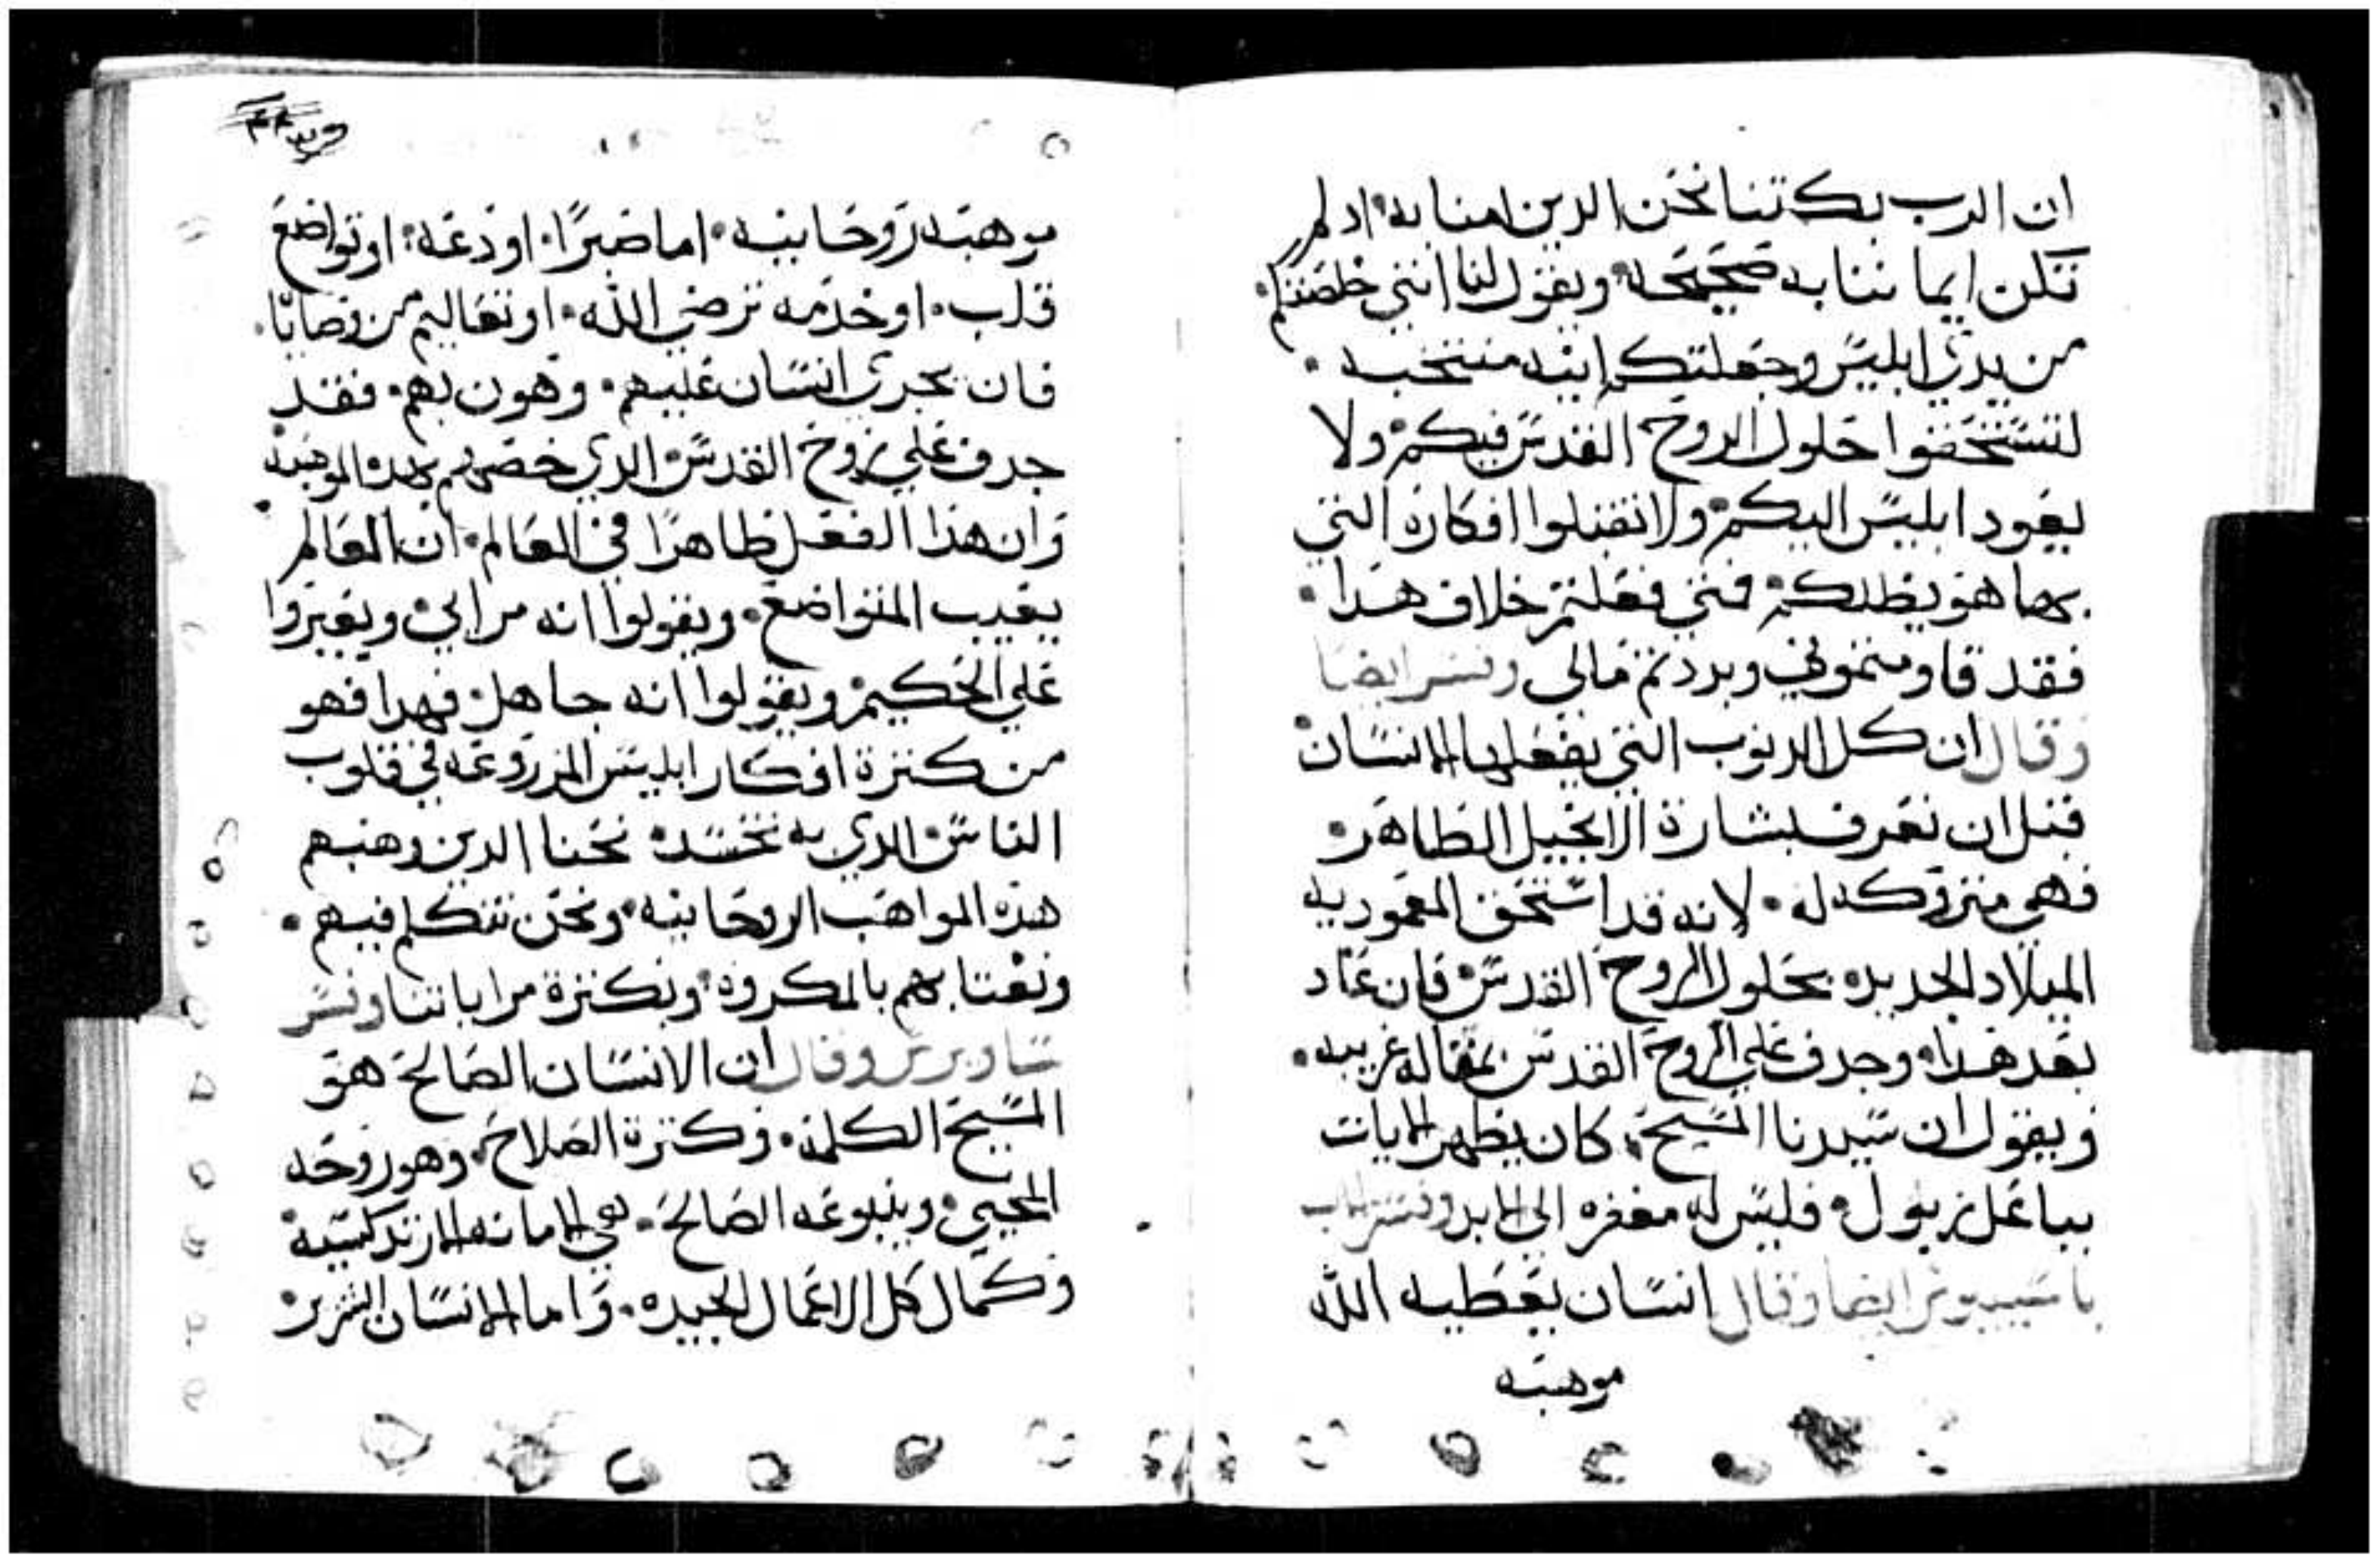 ان الرب يكتنا نحن الدين امنا به اد لم
تكن ايماننا به صحيحه ويقول لنا انني خلصتكم
من يدي ابليس وجعلتكم انيه منتخبه
لتستحقوا حلول الروح القدس فيكم ولا
يعود ابليس اليكم ولا تقبلوا افكاره التي
بها هو يظلكم فتي فعلتم خلاف هدا
فقد قاومتموني وبردتم مالي وفسر ايضا
وقال ان كل الدنوب التي يفعلها الانسان
قبل ان يعرف بشارة الانجيل الطاهر
فهي متروكه له لانه قد استحق المعموديه
الميلاد الجديده بحلول الروح القدس فان عاد
بعد هدا وجدف علي الروح القدس بمقاله غريبه
ويقول ان سيدنا المسيح كان يظهر الايات
بباعل زبول فليس له مغفره الي الابد وفسر
باسيليوس ايضا وقال انسان يعطيه الله
موهبه
موهبه روحانيه اما صبرًا او دعه او تواضع
قلب او خدمه ترضي الله او تعاليم من وصايا
فان يجري انسان عليهم وهون بهم فقد
جدف علي روح القدس الدي خصهم بهده الموهبه
وان هذا الفعل ظاهرًا في العالم ان العالم
يعيب المتواضع ويقولوا انه مرايي ويعيروا
علي الحكيم ويقولوا انه جاهل فهدا فهو
من كترة افكار ابليس المزروعه في قلوب
الناس الدي به نحسد نحنا الدين وهبهم
هذه المواهب الروحانيه ونحن نتكلم فيهم
ونغتابهم بالمكروه وبكترة مراياتنا وفسر
ساويرس وقال ان الانسان الصالح هو
المسيح الكلمه وكترة الصلاح وهو روحه
المحيي وينبوعه الصالح هي الامانه الارتدكسيه
وكمال كل الاعمال الجيده واما الانسان الشرير